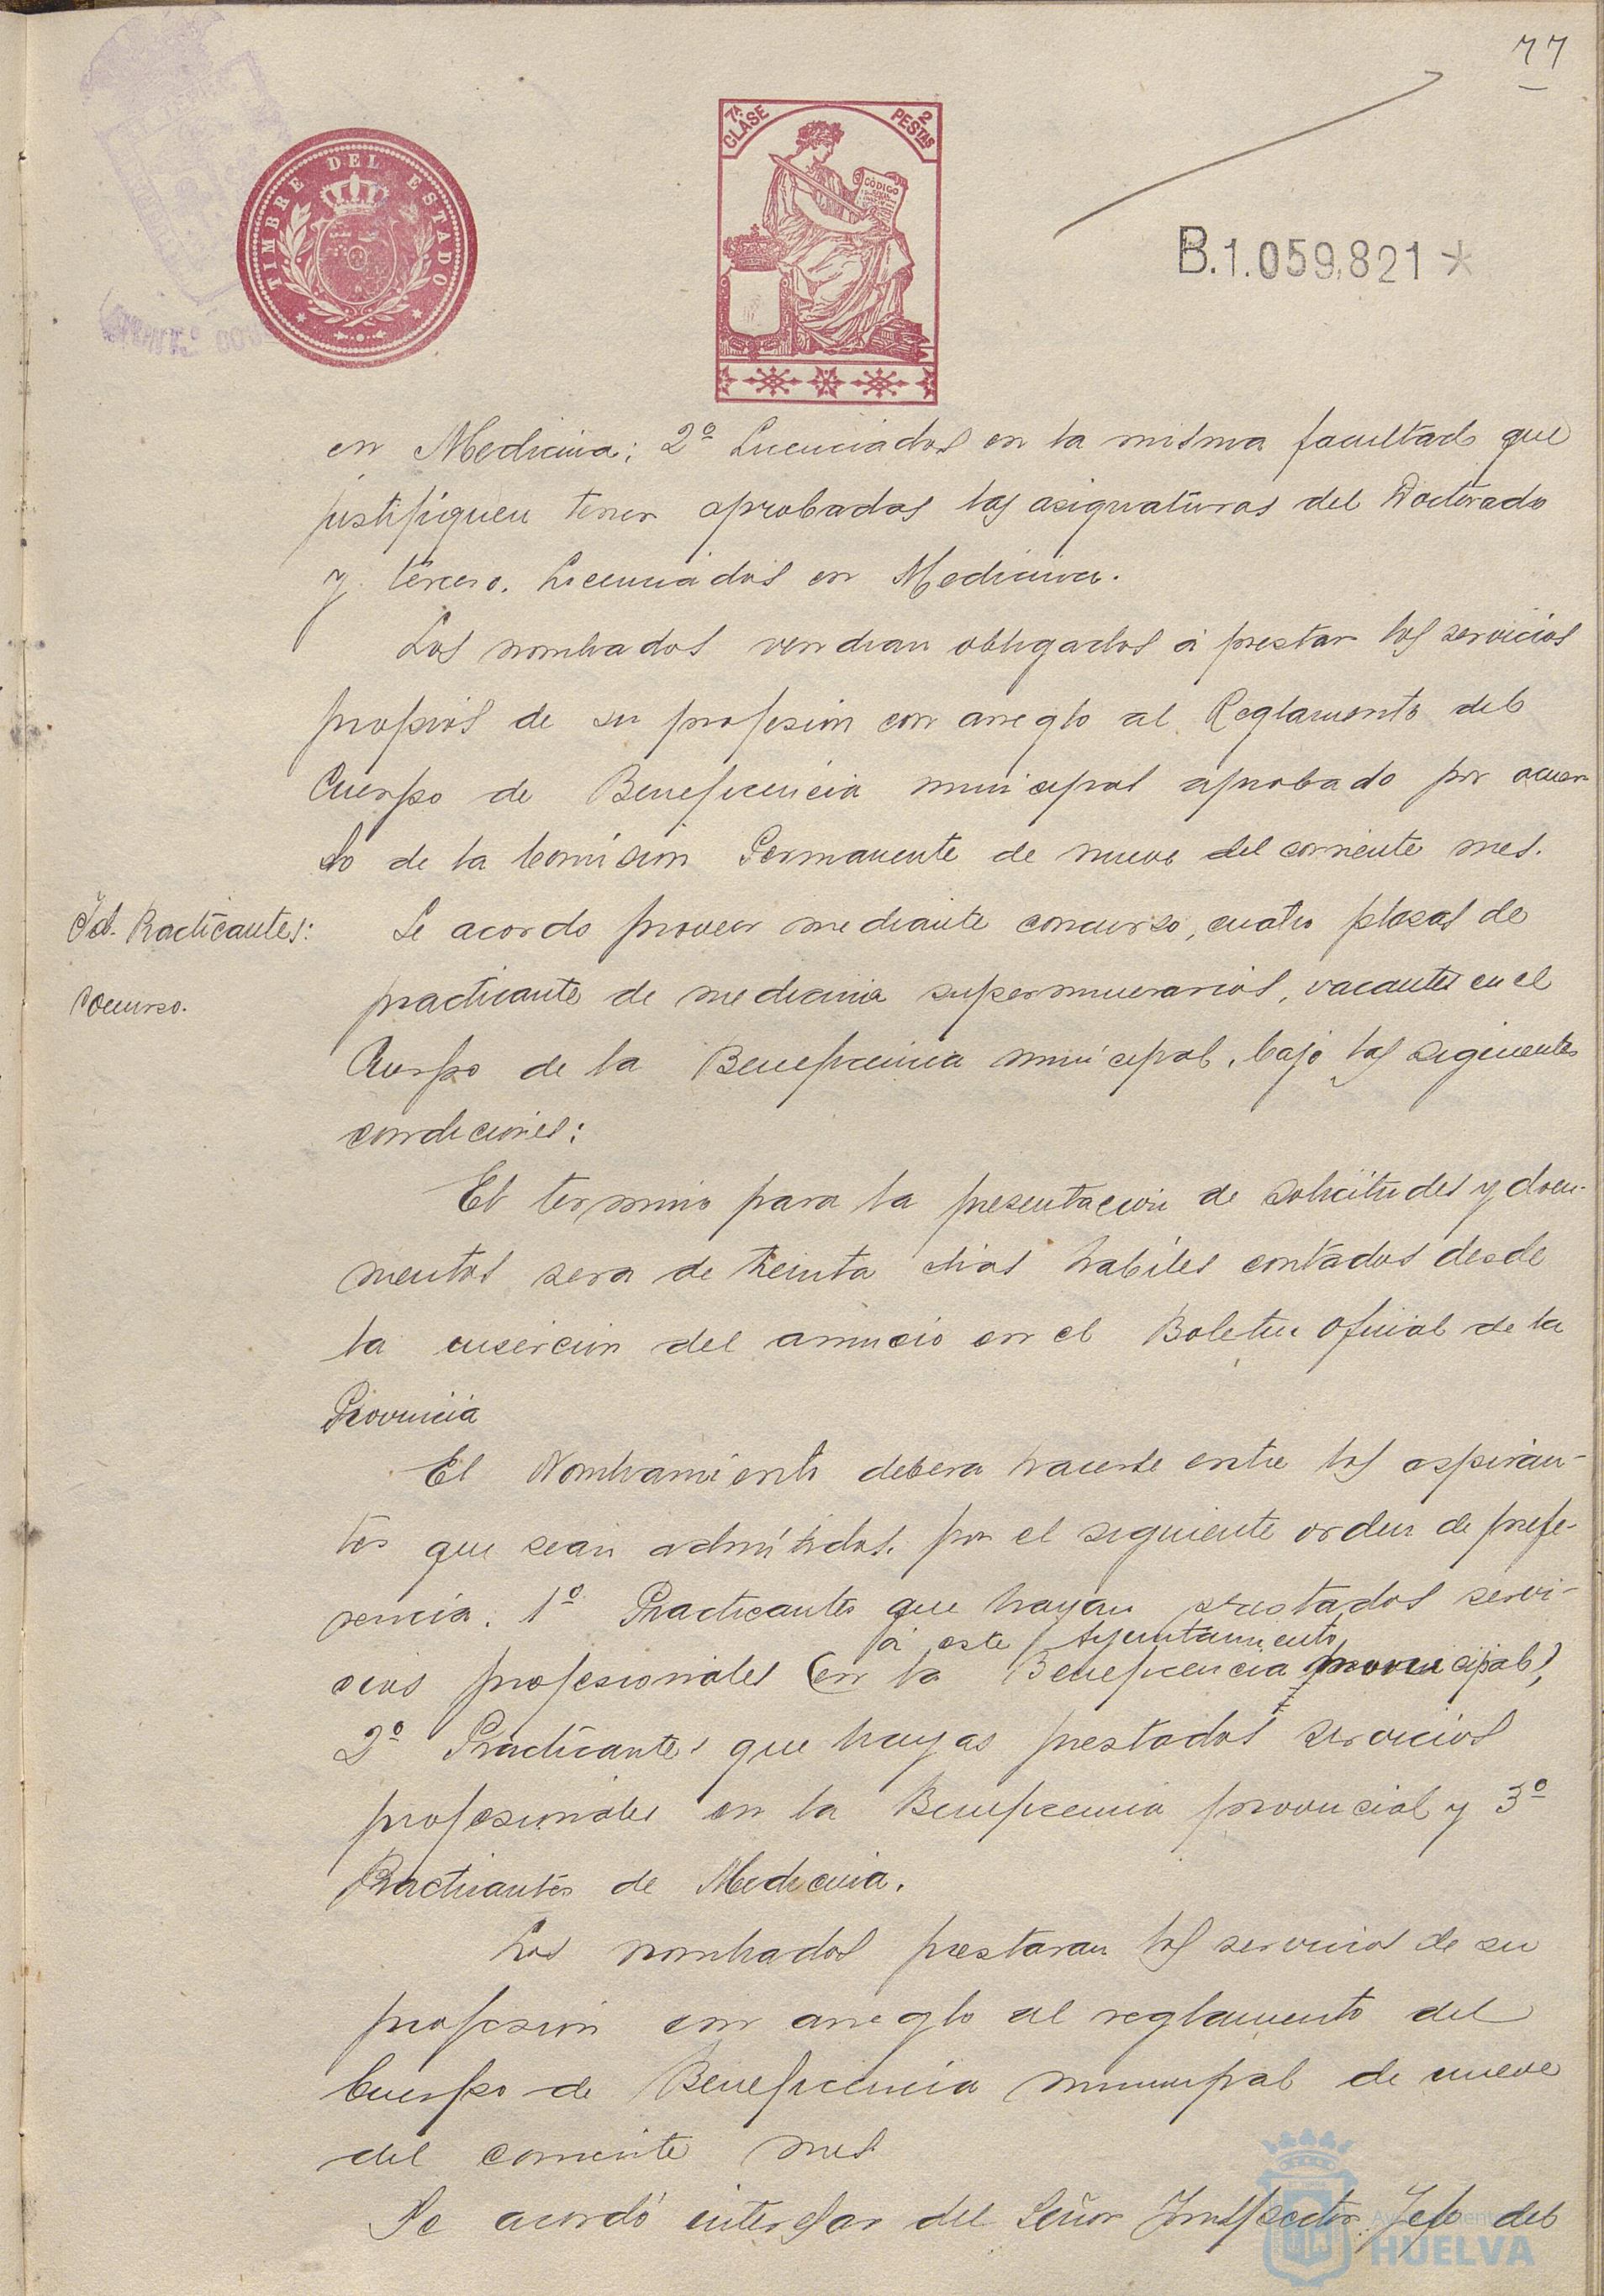 77
TIMBRE DEL ESTADO
7ª CLASE
2 PESTAS
CÓDIGO
B.1.059,821*
en Medicina; 2º Licenciados en la misma facultad que
justifiquen tener aprobadas las asignaturas del Doctorado
y tercero. Licenciados en Medicina.
Los nombrados vendran obligados á prestar los servicios
propios de su profesion con arreglo al Reglamento del
Cuerpo de Beneficencia municipal aprobado por acuer
do de la Comision Permanente de nueve del corriente mes.
Id. Practicantes:
Concurso.
Se acordo proveer mediante concurso, cuatro plazas de
practicante de medicina supernumerarios, vacantes en el
Cuerpo de la Beneficencia municipal, bajo las siguientes
condiciones:
El termino para la presentacion de solicitudes y docu-
mentos sera de treinta dias habiles contados desde
la insercion del anuncio en el Boletin Oficial de la
Provincia
El Nombramiento debera hacerse entre los aspiran-
tes que sean admitidos, por el siguiente orden de prefe-
rencia. 1º Practicantes que hayan prestados servi-
á este Ayuntamiento
cios profesionales (en la Beneficencia municipal),
2º Practicantes que hayas prestados servicios
profesionales en la Beneficencia provincial y 3º
Practicantes de Medicina.
Los nombrados prestaran los servicios de su
profesion con arreglo al reglamento del
Cuerpo de Beneficencia municipal de nueve
del corriente mes
Se acordó interesar del Señor Inspector Jefe del
Ayuntamiento
HUELVA